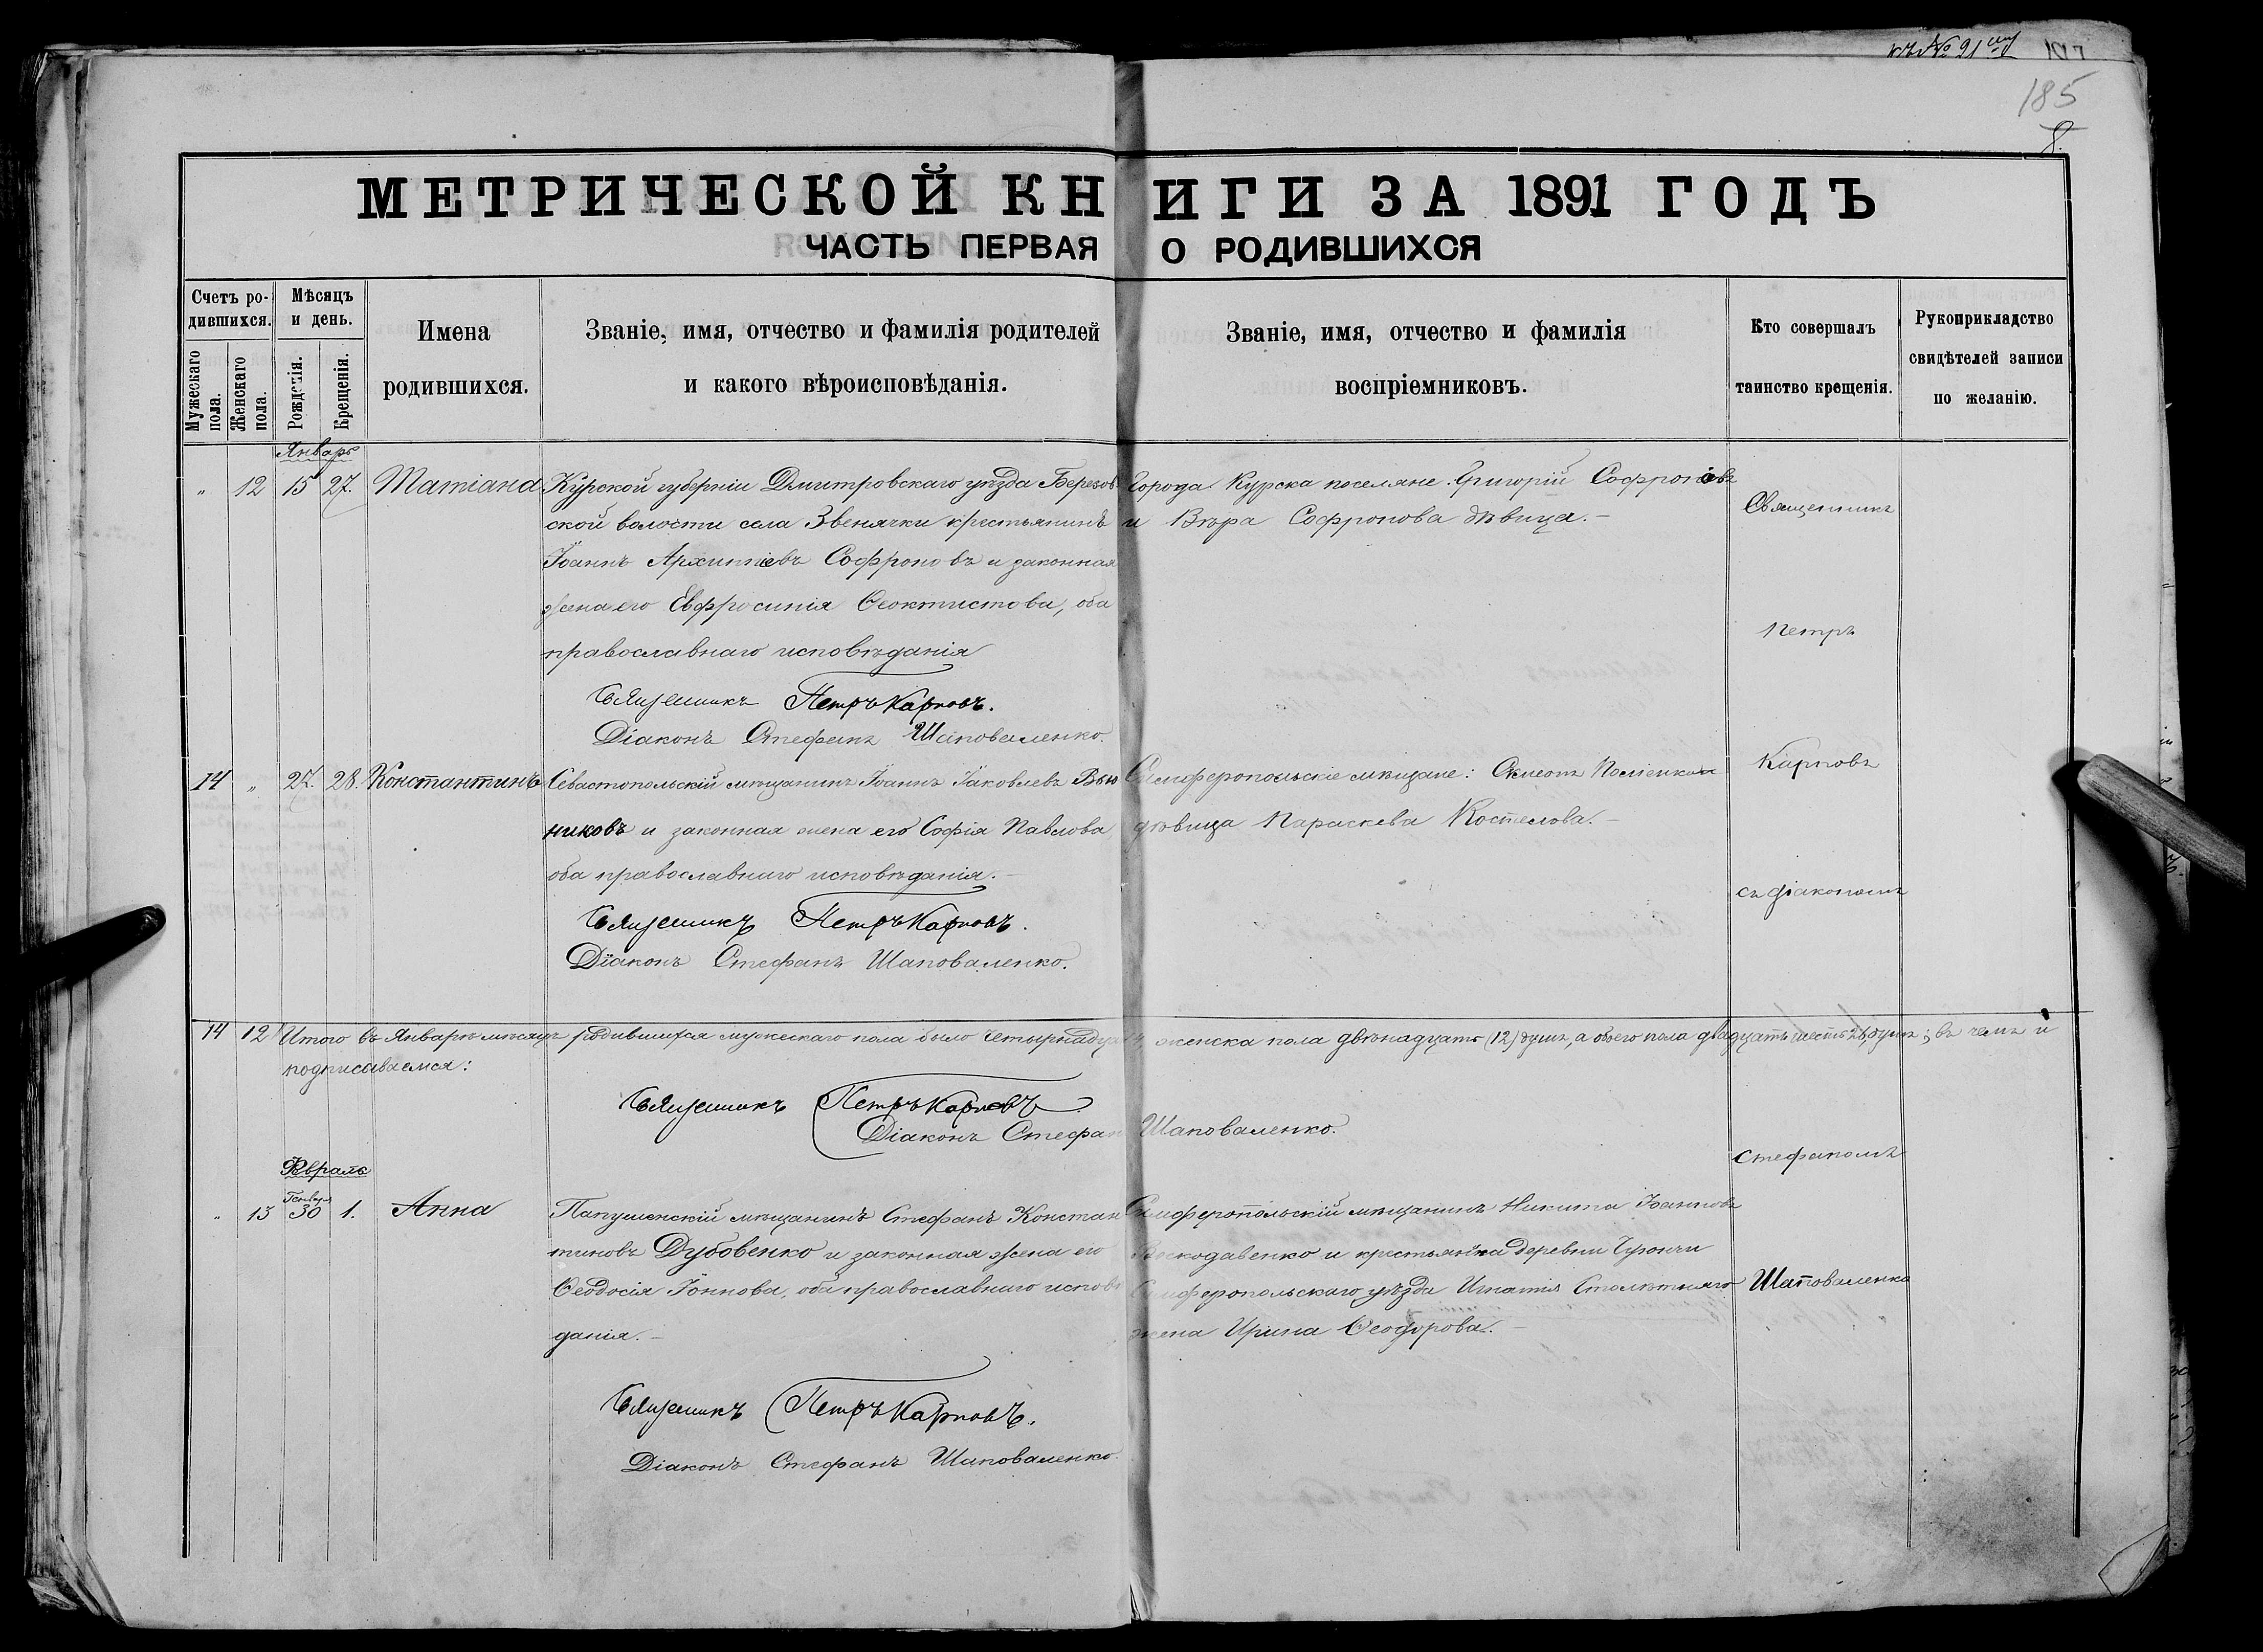 185
8.
МЕТРИЧЕСКОЙ КНИГИ ЗА 1891 ГОДЪ
ЧАСТЬ ПЕРВАЯ О РОДИВШИХСЯ
Счетъ ро-
дившихся.
Мужескаго пола.
Женскаго пола.
Мѣсяцъ
и день.
Рожденія.
Крещенія.
Имена
родившихся.
Званіе, имя, отчество и фамилія родителей
и какого вѣроисповѣданія.
Званіе, имя, отчество и фамилія
воспріемниковъ.
Кто совершалъ
таинство крещенія.
Рукоприкладство
свидѣтелей записи
по желанію.
Январь
„ 12 15 27. Татіана
Курской губерніи Дмитровскаго уѣзда Березов-
ской волости села Звенячки крестьянинъ
Іоаннъ Архиппіевъ Софроновъ и законная
жена его Евфросинія Ѳеоктистова, оба
православнаго исповѣданія
Священникъ Петръ Карповъ.
Діаконъ Стефанъ Шаповаленко.
Города Курска поселяне Григорій Софроновъ
и Вѣра Софронова дѣвица.
Священникъ
Петръ
Карповъ
съ діакономъ
Стефаномъ
Шаповаленко
14 „ 27. 28. Константинъ
Севастопольскій мѣщанинъ Іоаннъ Іаковлевъ Вью
никовъ и законная жена его Софія Павлова
оба православнаго исповѣданія.
Священникъ Петръ Карповъ.
Діаконъ Стефанъ Шаповаленко.
Симферопольскіе мѣщане:
дѣвица Параскева Костелова.
14 12 Итого въ Январѣ мѣсяцѣ родившихся мужескаго пола было четырнадца женска пола двѣнадцать (12) душъ, а обоего пола двадцать шесть 26, душъ; въ чемъ и
подписываемся:
Священникъ Петръ Карповъ
Діаконъ Стефан Шаповаленко.
Февраль
Генваря
„ 13 30 1. Анна
Папушенскій мѣщанинъ Стефанъ Констан
тиновъ Дубовенко и законная жена его
Ѳеодосія Іоннова, оба православнаго исповѣ
данія.
Священникъ Петръ Карповъ.
Діаконъ Стефанъ Шаповаленко.
Симферопольскій мѣщанинъ Никита Іоанновъ
и крестьянка деревни
Симферопольскаго уѣзда Игнатія Столѣтняго
жена Ирина Ѳеодорова.